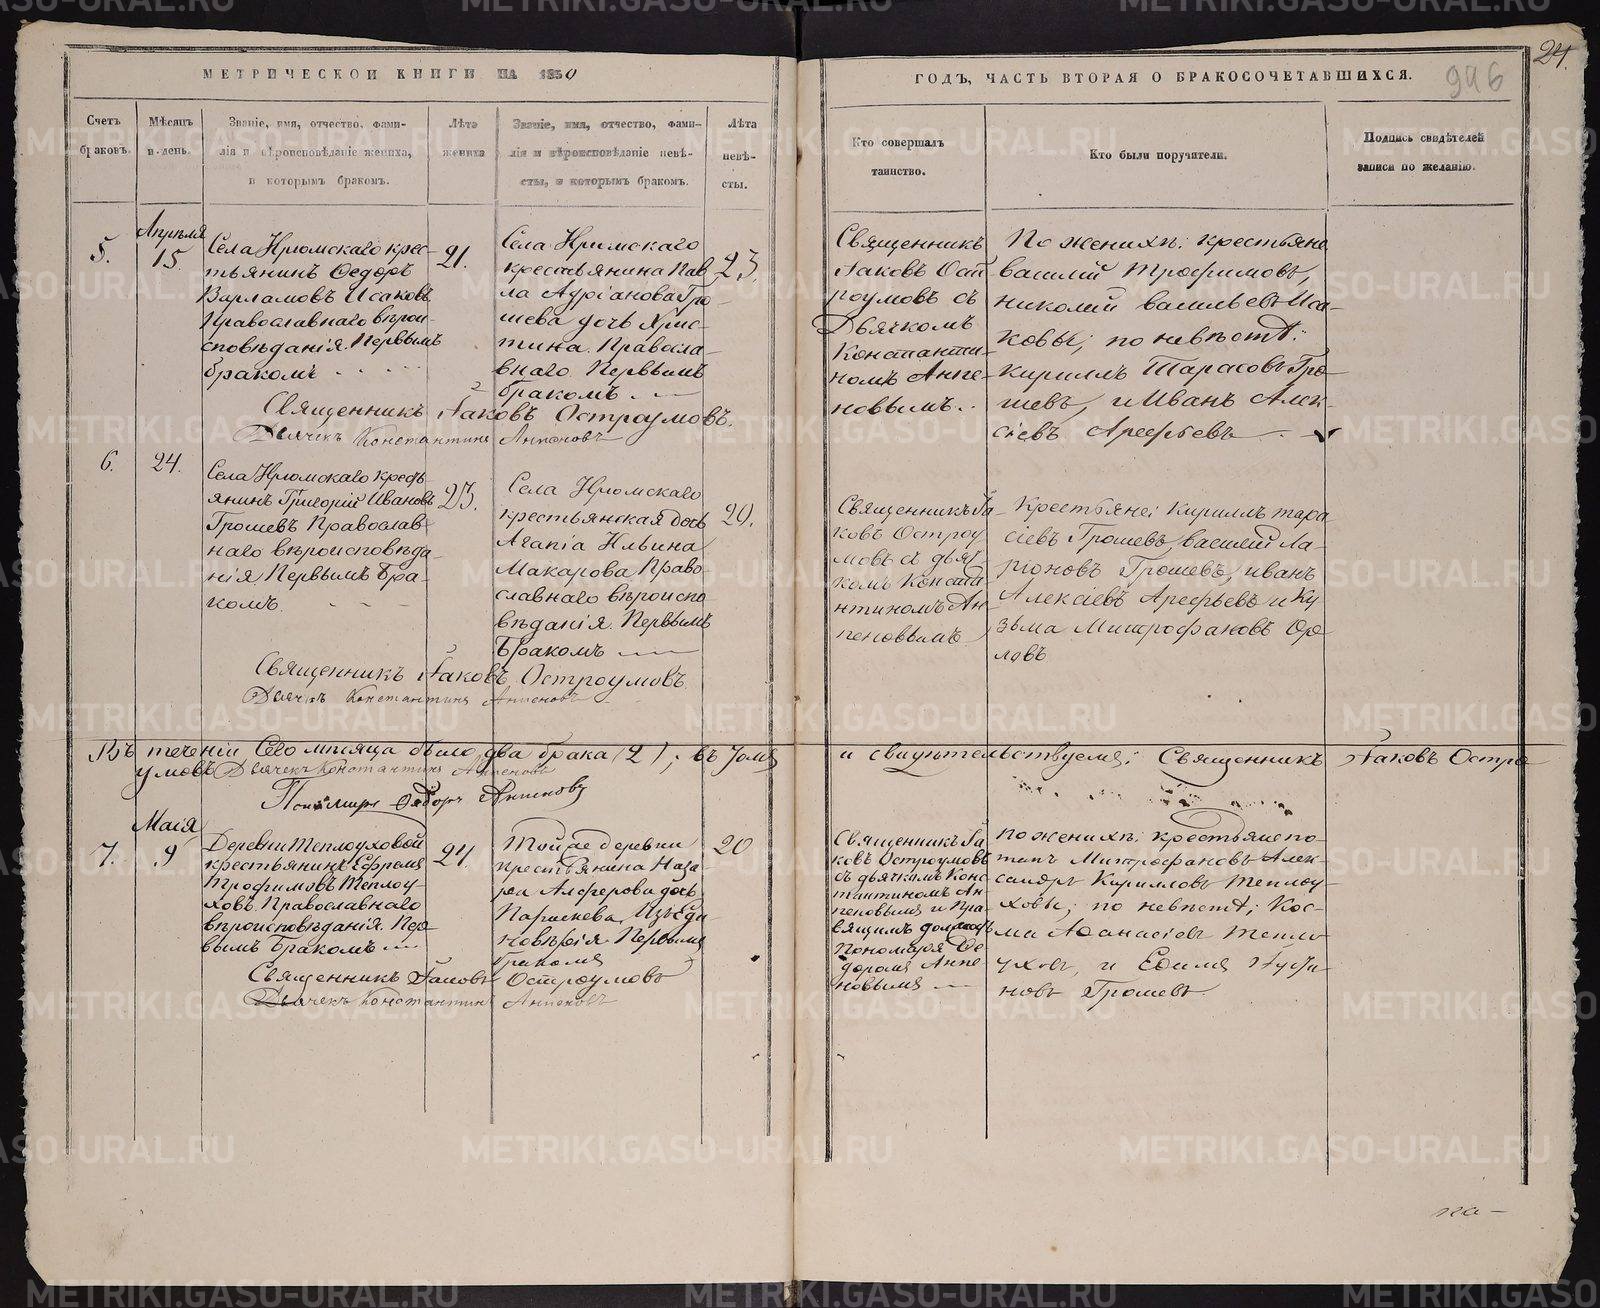 24.
946
МЕТРИЧЕСКОЙ КНИГИ НА 1850
ГОДЪ, ЧАСТЬ ВТОРАЯ О БРАКОСОЧЕТАВШИХСЯ.
Счетъ
браковъ.
Мѣсяцъ
и день.
Званіе, имя, отчество, фами-
лія и вѣроисповѣданіе жениха,
и которымъ бракомъ.
Лѣта
жениха
Званіе, имя, отчество, фами-
лія и вѣроисповѣданіе невѣ-
сты, и которымъ бракомъ.
Лѣта
невѣ-
сты.
Кто совершалъ
таинство.
Кто были поручители.
Подпись свидѣтелей
записи по желанію.
5.
Апрѣля
15.
Села крес-
тьянинъ Ѳедоръ
Варламовъ Исаковъ
Православнаго вѣрои-
сповѣданія. Первымъ
бракомъ
21.
Села
крестьянина Пав
ла Адріанова Гро
шева дочь Хрис-
тина. Правосла-
внаго Первымъ
бракомъ
23.
Священникъ
Іаковъ Ост
роумовъ съ
Дьячкомъ
Константи-
номъ Анпе-
новымъ.
По женихѣ: крестьяне
василий Трофимовъ,
николай васильевъ Иса-
ковы; по невѣстѣ:
Кириллъ Тарасовъ Гро-
шевъ, и Иванъ Алек-
сіевъ Арефьевъ
Священникъ Іаковъ Остроумовъ.
Дьячекъ Константинъ Анпеновъ
6.
24.
Села крестъ
янинъ Григорій Ивановъ
Грошевъ Православ-
наго вѣроисповѣда-
нія Первымъ Бра-
комъ.
23.
Села
крестьянская дочь
Агапіа Ильина
Макарова Право-
славнаго вѣроиспо-
вѣданія. Первымъ
Бракомъ
20.
Священникъ Іа-
ковъ Остроу
мовъ съ дьяч
комъ Конста-
нтиномъ Ан-
пеновымъ
Крестьяне: Кириллъ тара-
сіевъ Грошевъ, василий Ла-
ріоновъ Грошевъ, иванъ
Алексіевъ Арефьевъ и Ку-
зьма Митрофановъ Ор-
ловъ
Священникъ Іаковъ Остроумовъ
Дьячекъ Константинъ Анпеновъ
Въ теченіи Сего мѣсяца было два брака (2); въ томъ и свидѣтельствуемъ: Священникъ Іаковъ Остро
умовъ Дьячекъ Константинъ Анпеновъ
Пономарь Ѳедоръ Анпеновъ
7.
Маія
9
Деревни Теплоуховой
крестьянинъ Ефремъ
Трофимовъ Теплоу-
ховъ. Православнаго
вѣроисповѣданія. Пер-
вымъ Бракомъ
21.
Той же деревни
крестьянина Наза-
ра Алферова дочь
Параскева, Изъ Еди
новѣрія. Первымъ
бракомъ
20
Священникъ Іа
ковъ Остроумовъ
съ дьячкомъ Конс-
тантиномъ Ан-
пеновымъ и Пра-
вящимъ должность
Пономаря Ѳе-
доромъ Анпе-
новымъ
По женихѣ: крестьяне по-
тапъ Митрофановъ Алек-
сандръ Кирилловъ Теплоу-
ховы; по невѣстѣ; Кос-
ма Афанасіевъ Тепло-
уховъ, и Ефимъ
новъ Грошевъ.
Священникъ Іаковъ Остроумовъ
Дьячекъ Константинъ Анпеновъ
METRIKI.GASO-URAL.RU